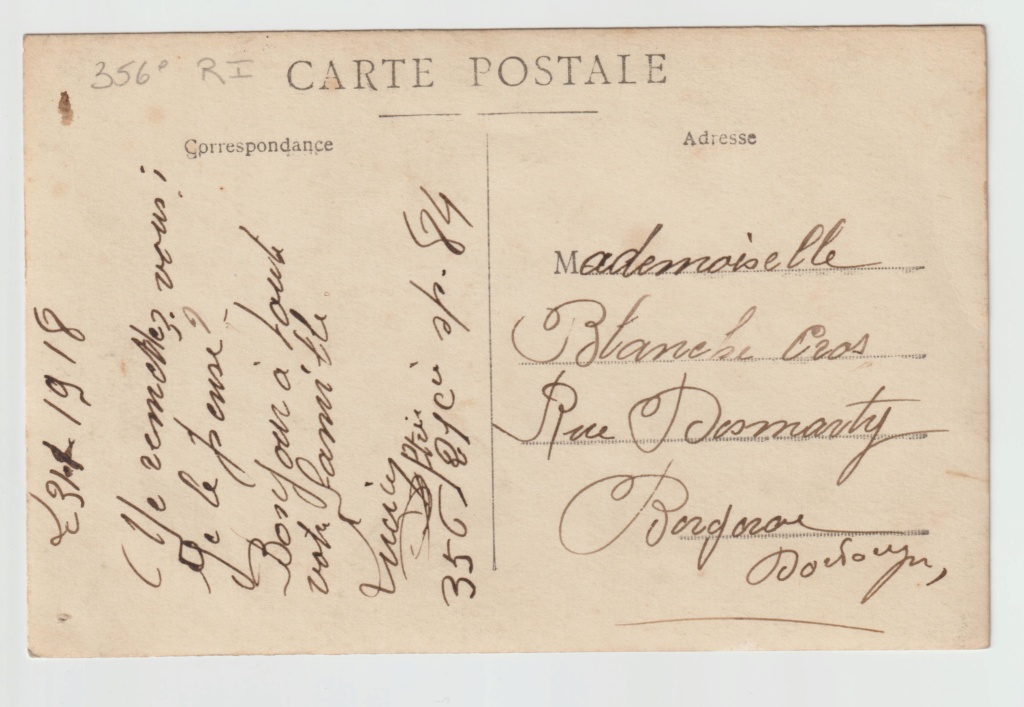 356e RI
CARTE POSTALE
Correspondance
Adresse
Le 3 1918
Me remettez vous ;
Je le pense
Bonjour à toute
votre famille
Lucien
356 21 Cie sp. 84
Mademoiselle
Blanche Cros
Rue Desmarty
Bergerac
Dordogne,